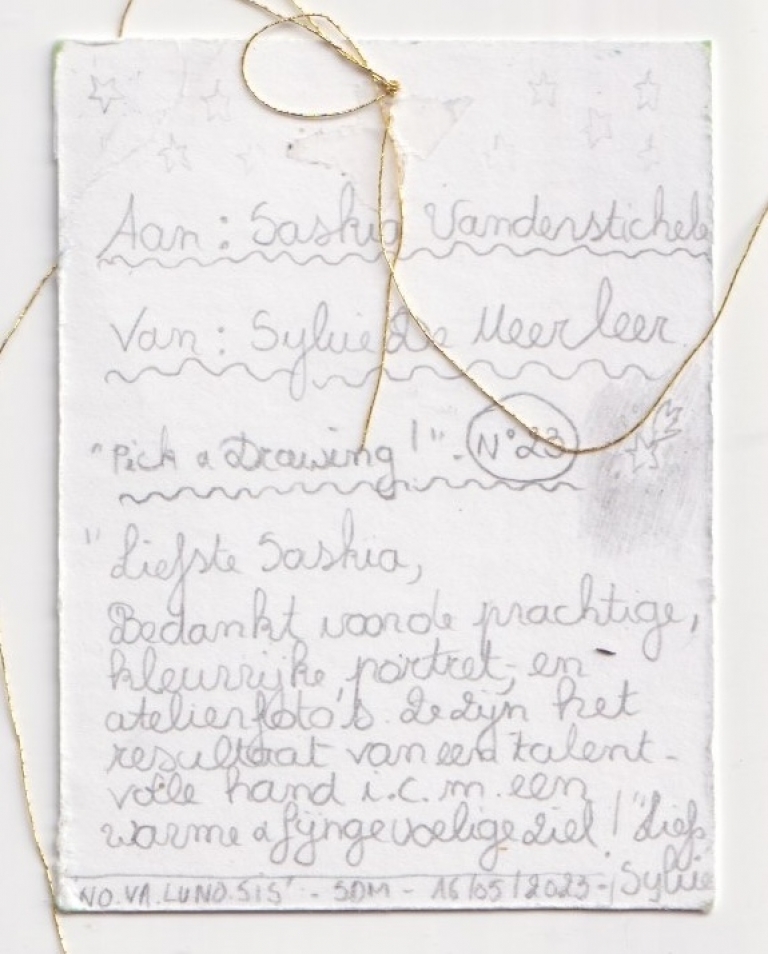 Aan: Saskia Vanderstichele
Van: Sylvie De Meerleer
"Pick a Drawing!". N°23
"Liefste Saskia,
Bedankt voor de prachtige,
kleurrijke, portret-, en
atelierfoto's. Ze zijn het
resultaat van een talent-
volle hand i.c.m. een
warme & fijngevoelige ziel!" Liefs
Sylvie
'NO.VA.LUNO.SIS' - SDM - 16/05/2023 -